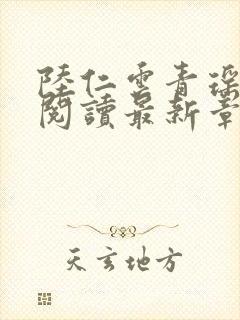 陸仁雲青瑶
閱讀最新章
天玄地方